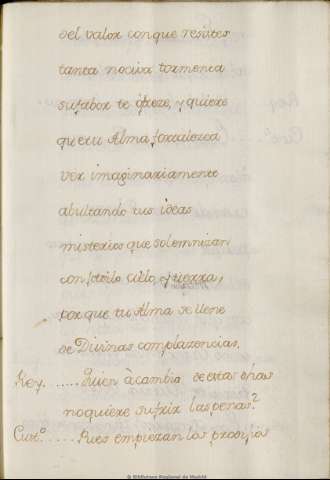 del valor con que resistes
tanta nociva tormenta
su favor te ofreze, y quiere
que tu Alma fortalezca
ver imaginariamente
abultando tus ideas
misterios que solemnizan
con todo cielo, y tierra,
por que tu Alma se llene
de Divinas complazencias.
Rey. ...... Quien à cambio de estas
no quiere sufrir las penas?
Cust.º ...... Pues empiezan los prodigios
© Biblioteca Regional de Madrid